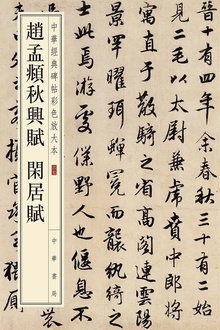 中華經典碑帖彩色放大本
趙孟頫秋興賦 閑居賦
中華書局
晉十有四年余春秋三十有二始
見二毛以太尉掾兼虎賁中郎將
高閣連雲陽
景罕曜
而襲紈綺之
士此焉游處僕野人也偃息不